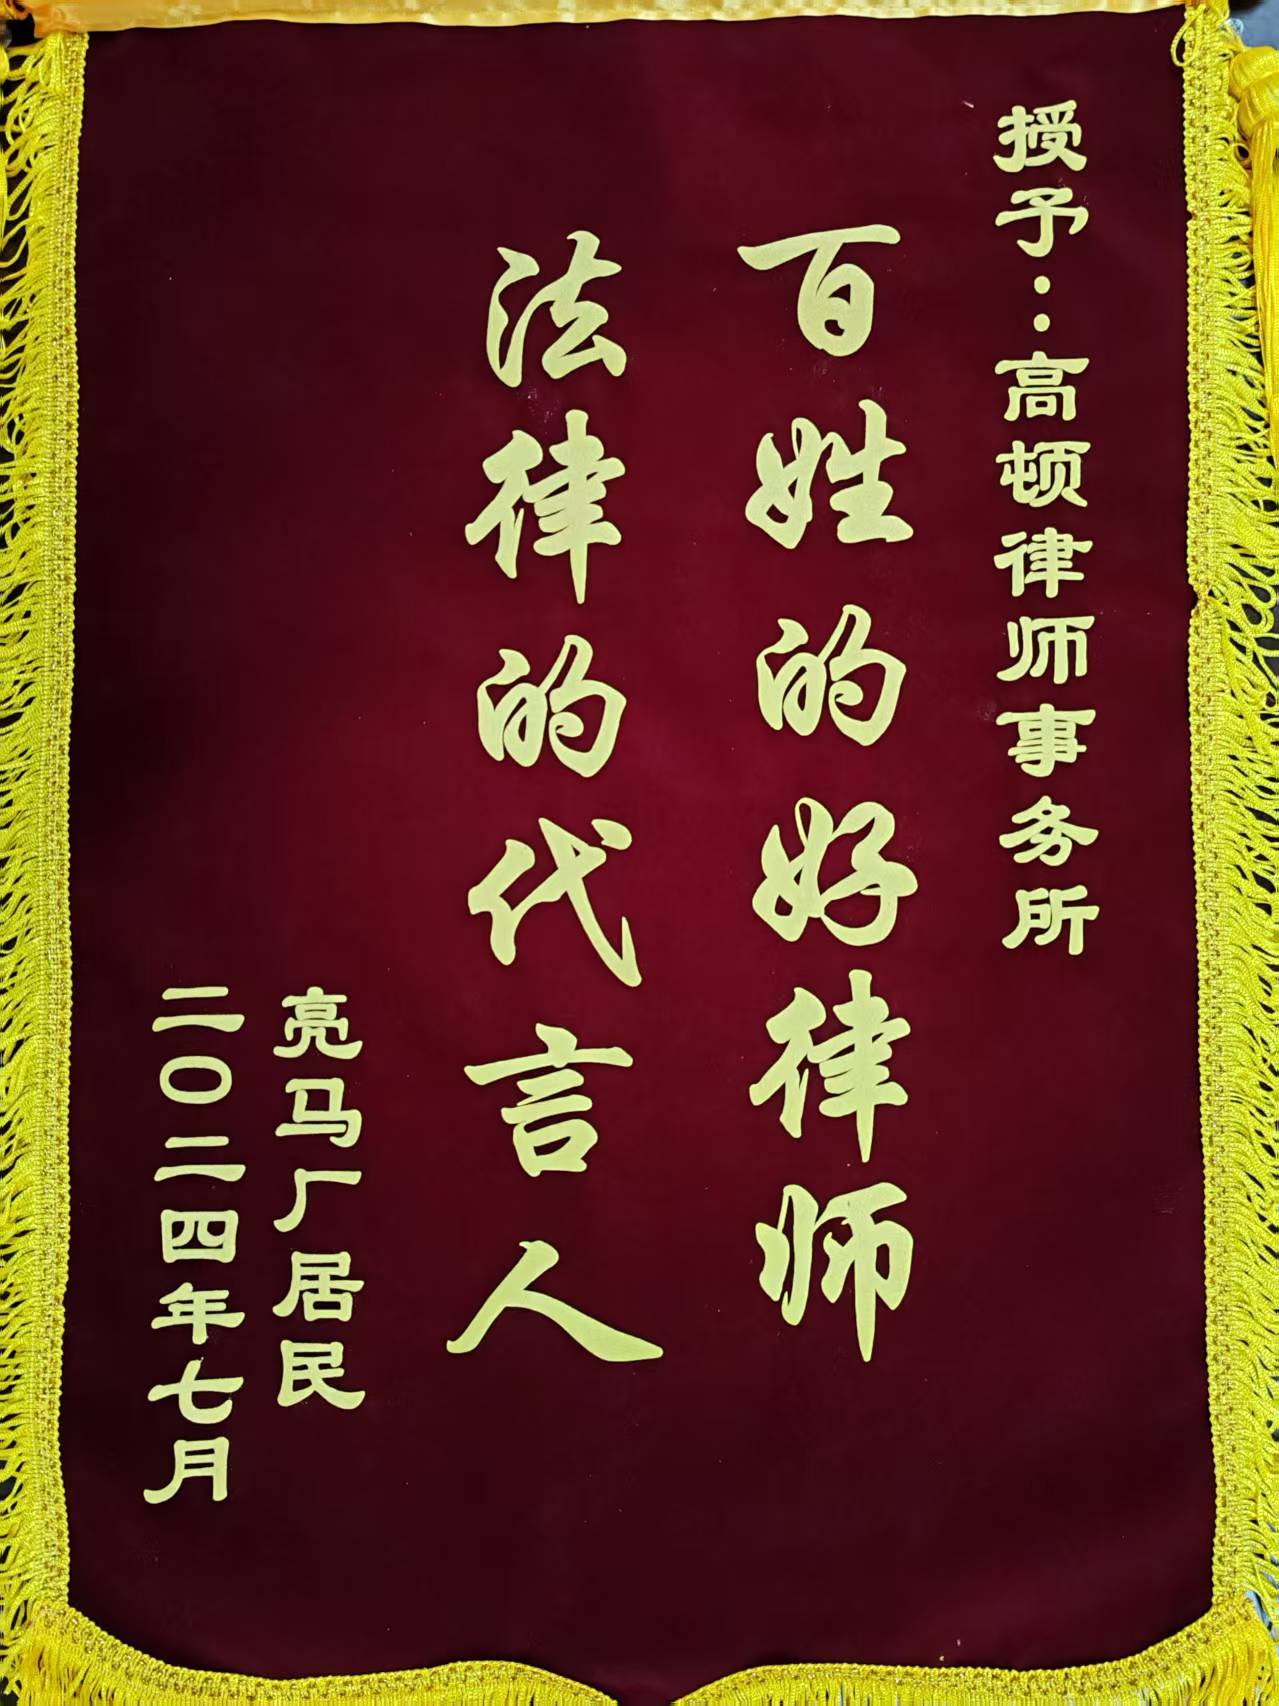 授予：高顿律师事务所
百姓的好律师
法律的代言人
亮马厂居民
二〇二四年七月